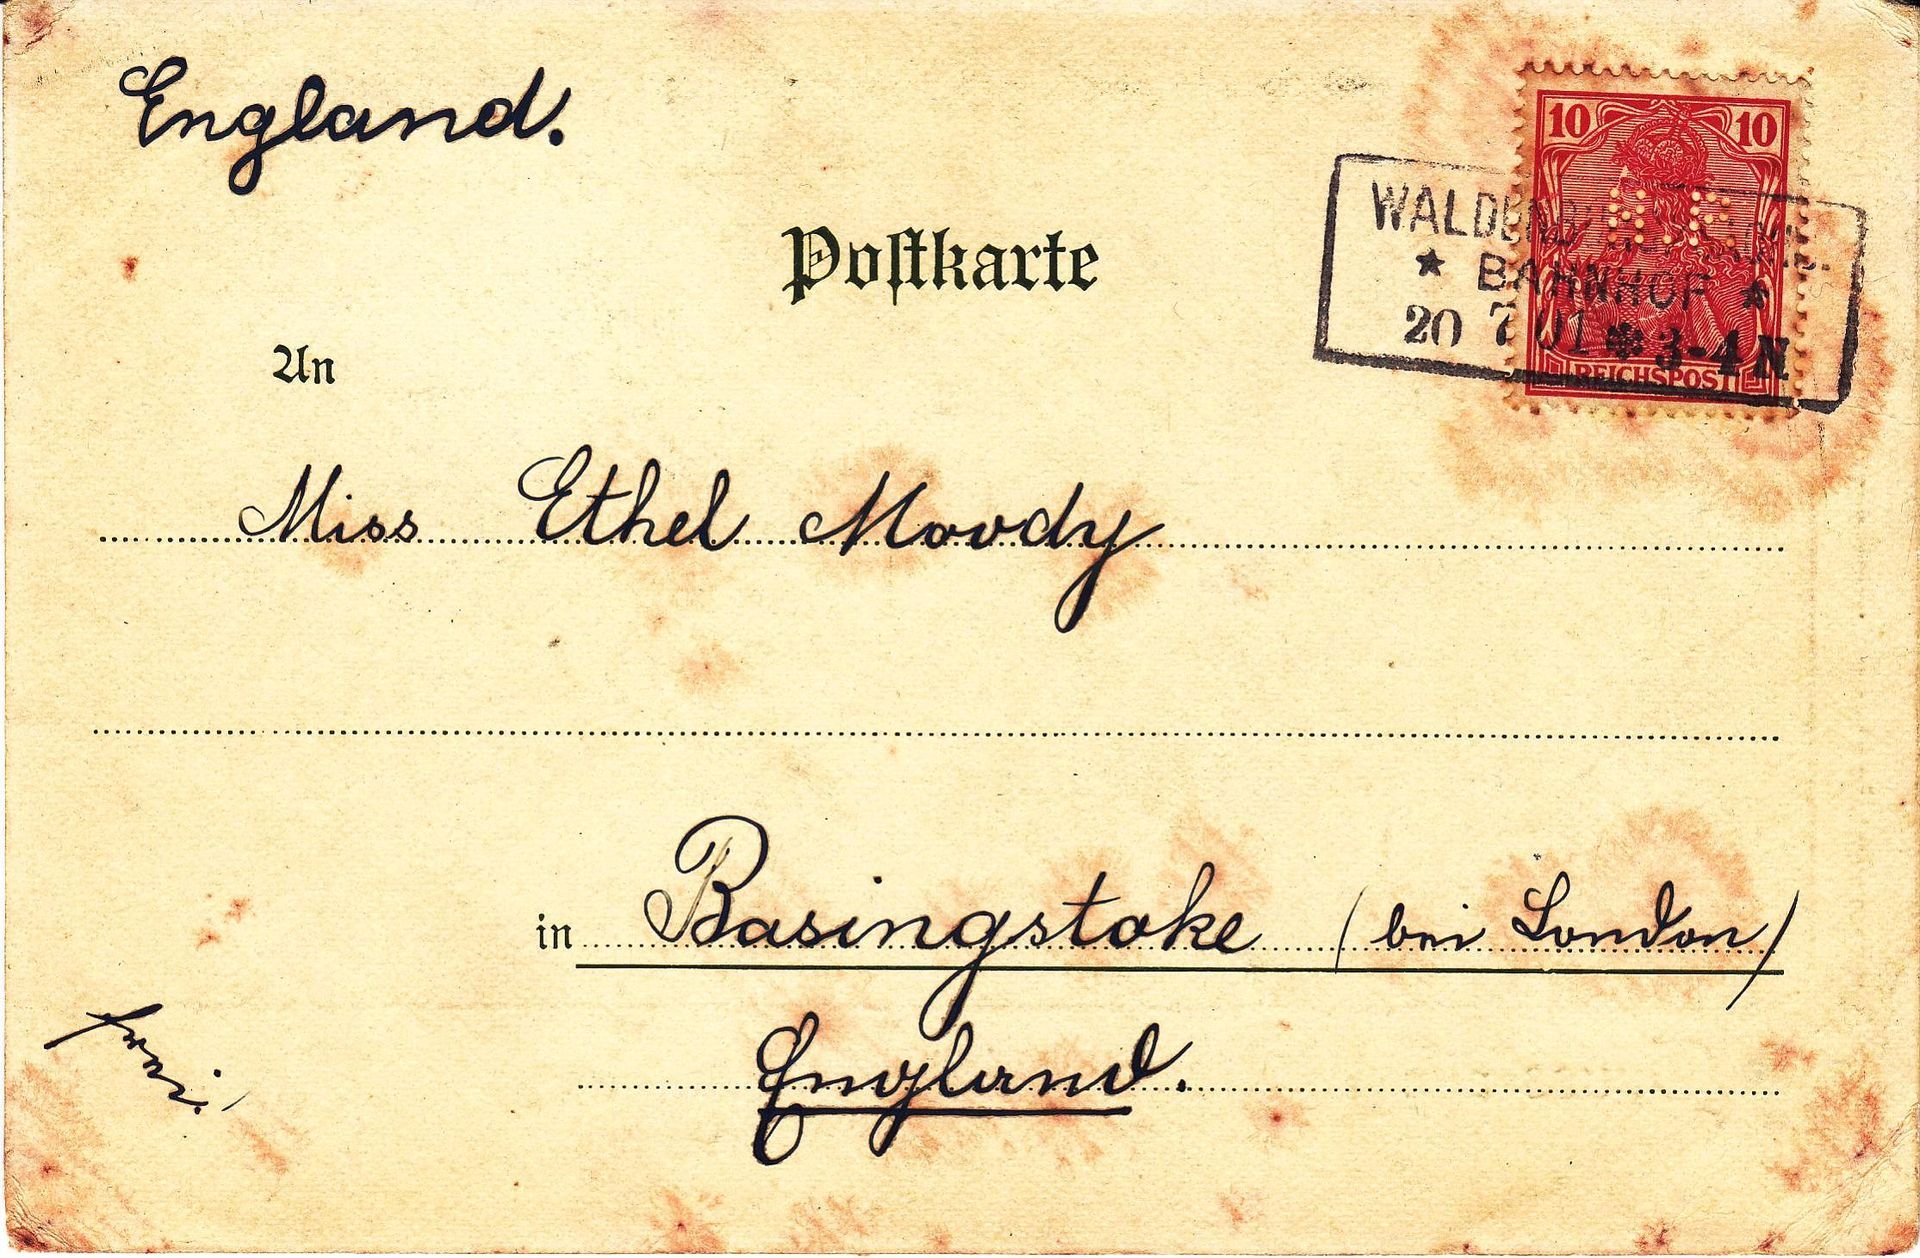 England.
10 10
WALDENBURG
★ BAHNHOF ★
20 7 01 ✽ 3-4 N
REICHSPOST
Postkarte
An
Miss Ethel Moody
in Basingstoke (bei London)
England.
frei.